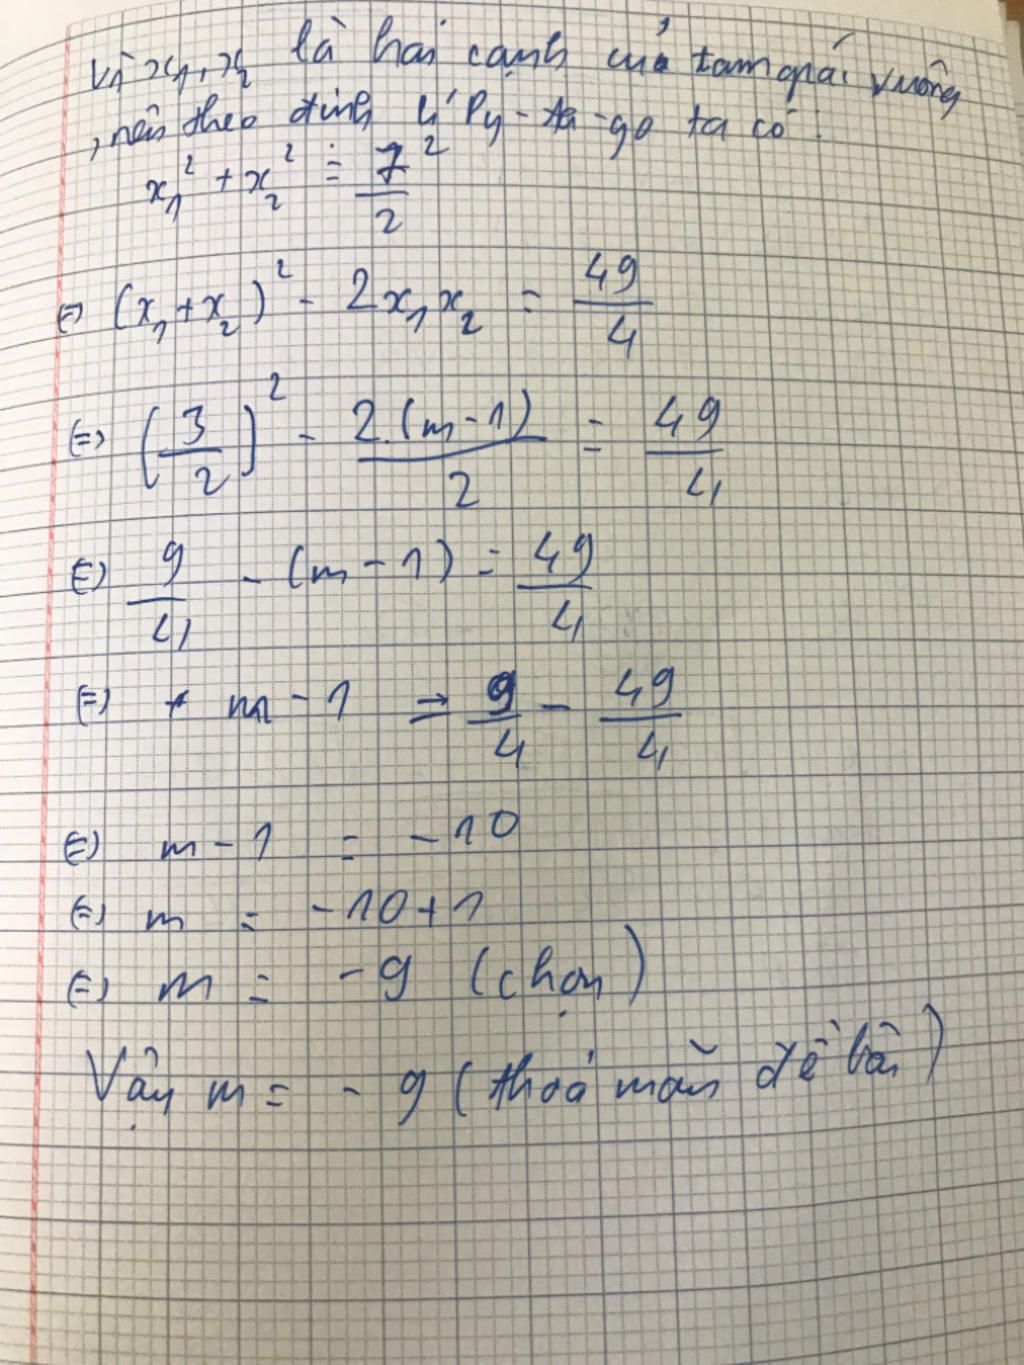 Vì x₁, x₂ là hai cạnh của tam giác vuông
, nên theo định lí Py-ta-go ta có:
x₁² + x₂² = 7²/2
(=) (x₁+x₂)² - 2x₁x₂ = 49/4
(=) (3/2)² - 2.(m-1)/2 = 49/4
(=) 9/4 - (m-1) = 49/4
(=) + m - 1 = 9/4 - 49/4
(=) m - 1 = -10
(=) m = -10+1
(=) m = -9 (chọn)
Vậy m = -9 (thoả mãn đề bài)